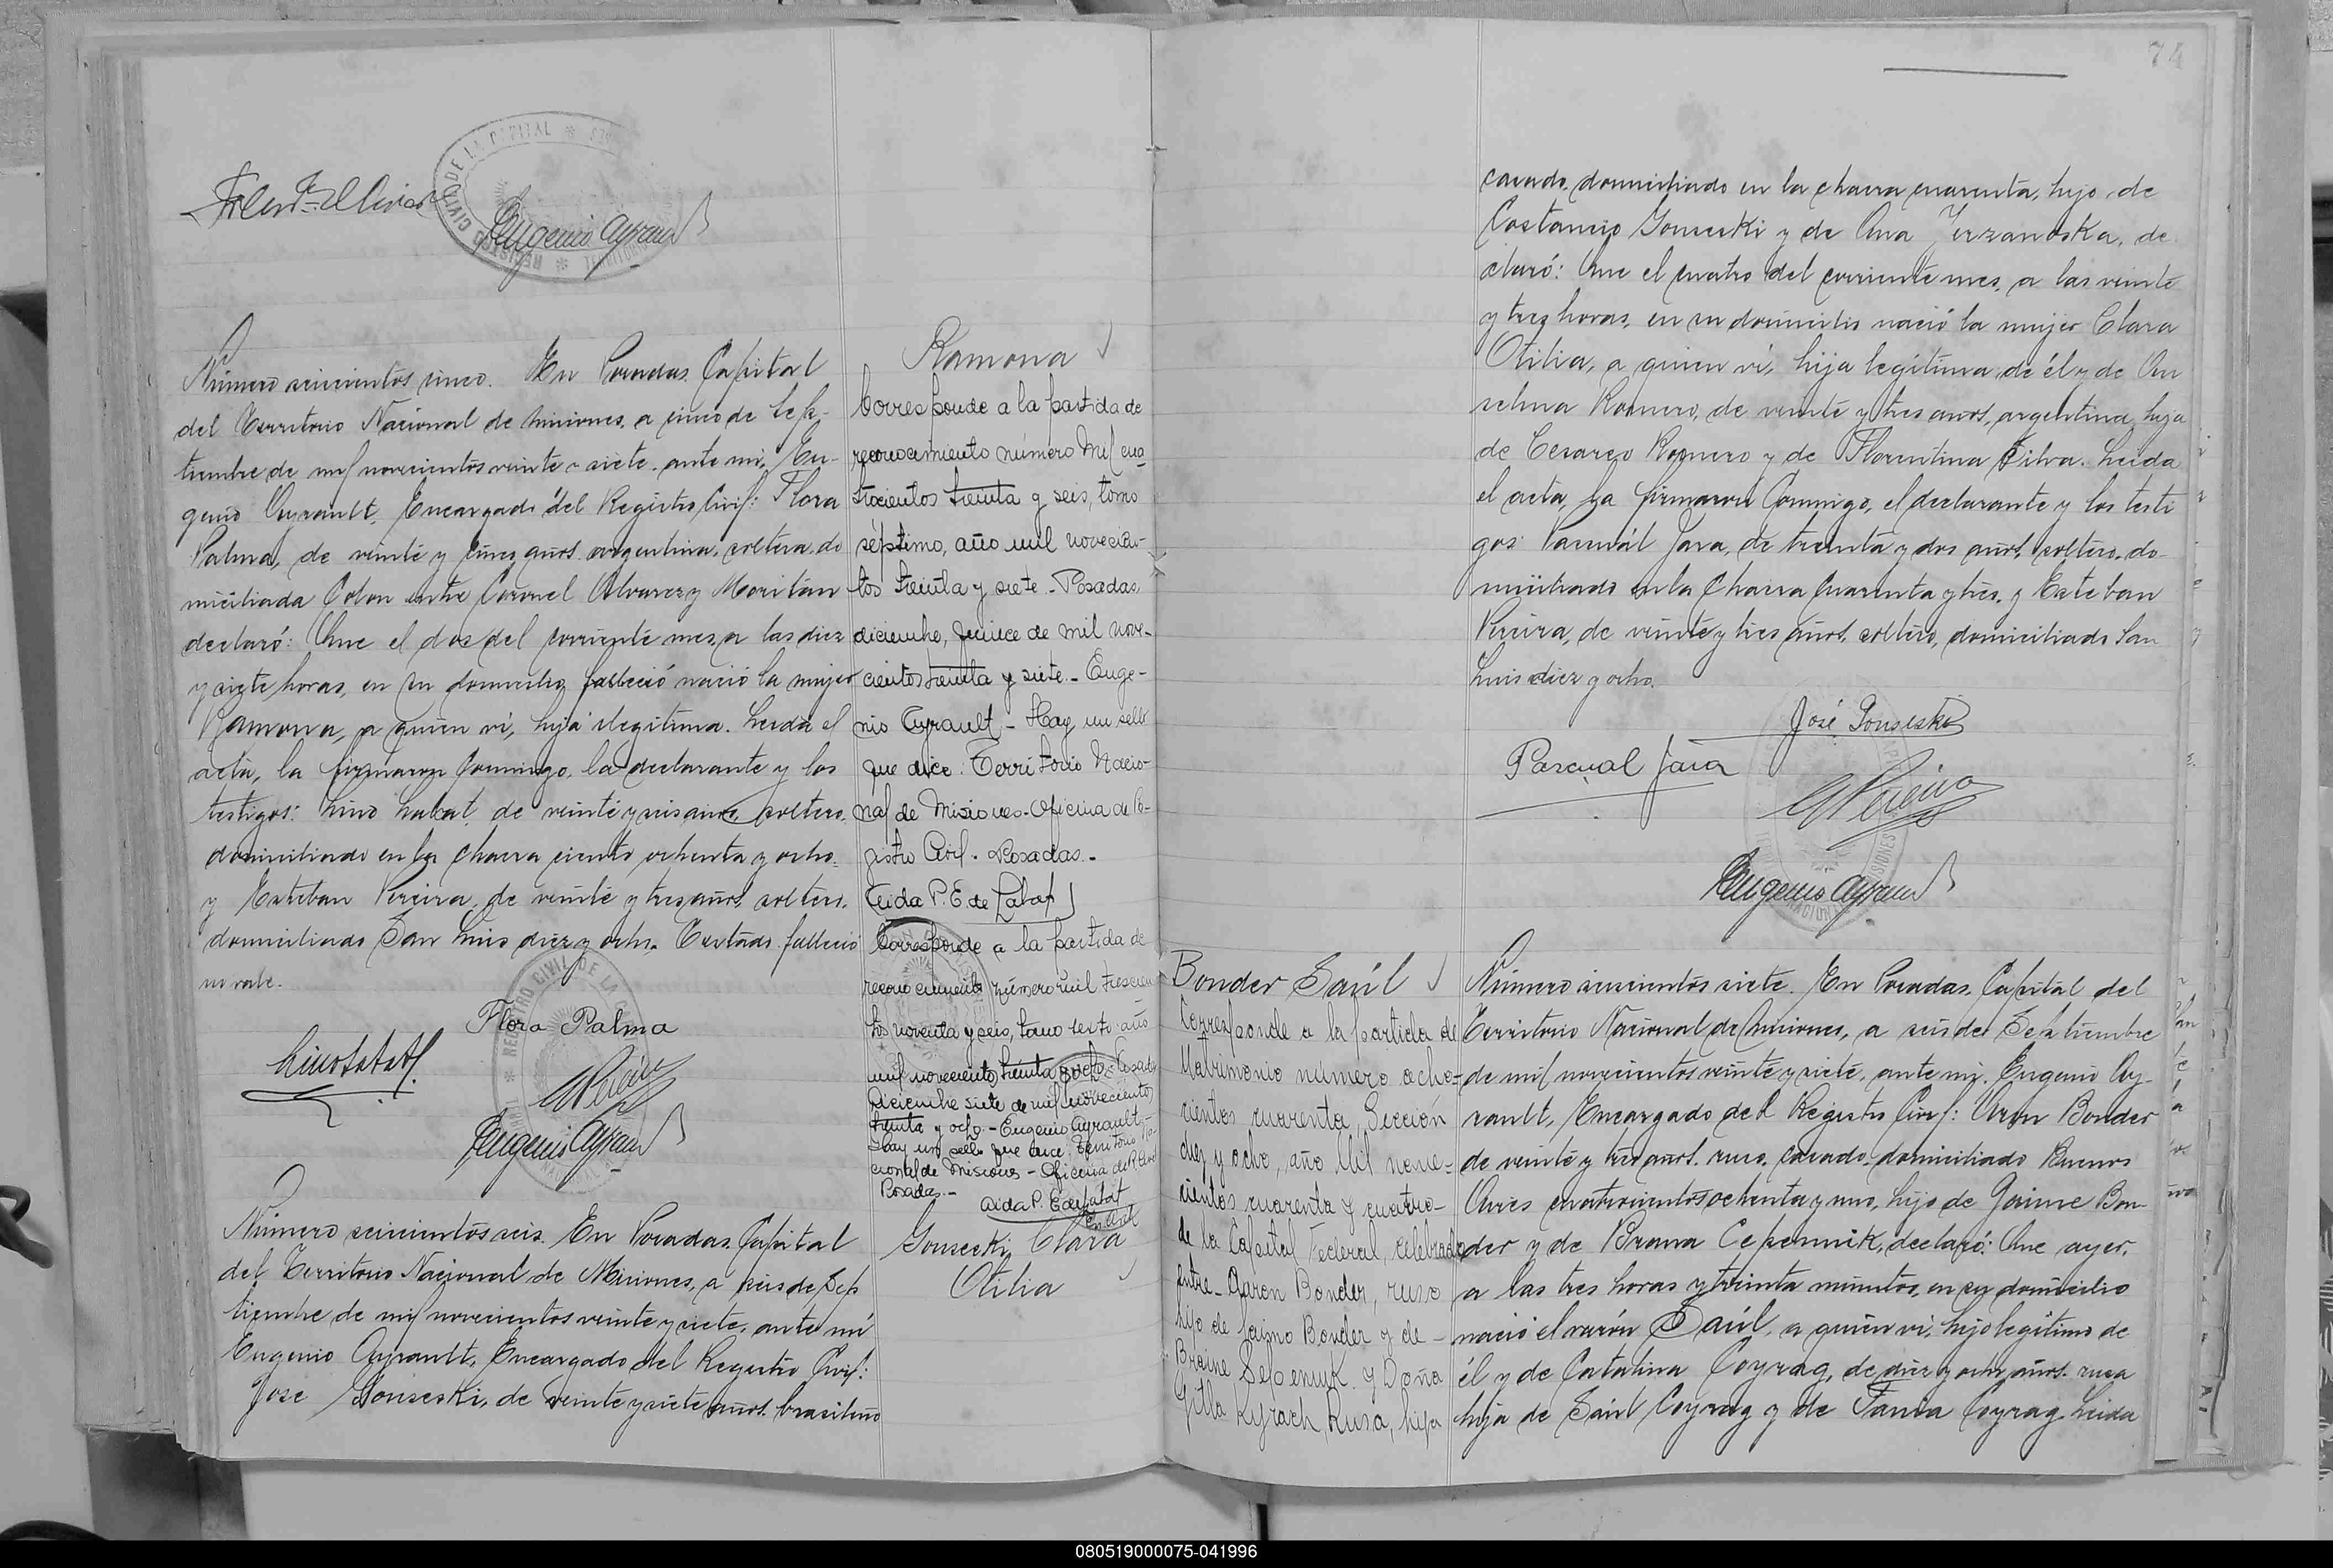 REGISTRO CIVIL DE LA CAPITAL
Eugenio Ayrault
Número seicientos cinco. En Posadas Capital
del Territorio Nacional de Misiones, a cinco de Sep-
tiembre de mil novecientos veinte y siete, ante mi, Eu-
genio Ayrault, Encargado del Registro Civil: Flora
Palma, de veinte y cinco años, argentina, soltera, do
miciliada Colon entre Coronel Alvarez y Moritán
declaró: Que el dos del corriente mes, a las diez
y siete horas, en su domicilio falleció nació la mujer
Ramona, a quien vi, hija ilegitima. Leida el
acta, la firmaron conmigo, la declarante y los
testigos: Lino Labat, de veinte y seis años, soltero,
domiciliado en la chacra ciento ochenta y ocho,
y Esteban Pereira, de veinte y tres años, soltero,
domiciliado San Luis diez y ocho. Testado: falleció
no vale.
Flora Palma
Lino Labat
EPereira
Eugenio Ayrault
Ramona
Corresponde a la partida de
reconocimiento número mil cua
trocientos treinta y seis, tomo
séptimo, año mil novecien-
tos treinta y siete - Posadas,
diciembre, quince de mil nove-
cientos treinta y siete. - Euge-
nio Ayrault - Hay un sello
que dice: Territorio Nacio-
nal de Misiones - Oficina de Re-
gistro Civil - Posadas. -
Aida P. E. de Labat
Corresponde a la partida de
reconocimiento número mil trescien
tos noventa y seis, tomo sexto año
mil novecientos treinta y ocho - Posadas
Diciembre siete de mil novecientos
treinta y ocho. - Eugenio Ayrault -
Hay un sello que dice: Territorio Na-
cional de Misiones - Oficina de R. Civil
Posadas. -
Aida P. E de Labat
Número seicientos seis. En Posadas, Capital
del Territorio Nacional de Misiones, a seis de Sep
tiembre de mil novecientos veinte y siete, ante mi
Eugenio Ayrault, Encargado del Registro Civil:
José Gonseski, de veinte y siete años, brasileño
Gonseski, Clara
Otilia
74
casado, domiciliado en la chacra cuarenta, hijo de
Costancio Gonseski y de Ana Jerzanoska, de
claró: Que el cuatro del corriente mes, a las veinte
y tres horas, en su domicilio nació la mujer Clara
Otilia, a quien vi, hija legítima de él y de An
selma Romero, de veinte y tres años, argentina, hija
de Cesareo Romero y de Florentina Silva. Leida
el acta, la firmaron conmigo, el declarante y los testi
gos: Pascuál Jara, de treinta y dos años, soltero, do
miciliado en la Chacra cuarenta y tres, y Esteban
Pereira, de veinte y tres años, soltero, domiciliado San
Luis diez y ocho.
José Gonseski
Pascual Jara
EPereira
Eugenio Ayrault
Bonder Saúl
Corresponde a la partida de
Matrimonio número ocho-
cientos cuarenta, Sección
diez y ocho, año Mil nove-
cientos cuarenta y cuatro-
de la Capital Federal, celebrado
entre - Aaron Bonder, ruso
hijo de Jaimo Bonder y de -
Braine Sepeniuk y Doña
Gitla Kyrach, Rusa, hija
Número seicientos siete. En Posadas, Capital del
Territorio Nacional de Misiones, a seis de Septiembre
de mil novecientos veinte y siete, ante mi, Eugenio Ay-
rault, Encargado del Registro Civil: Aron Bonder
de veinte y tres años, ruso, casado, domiciliado Buenos
Aires cuatrocientos ochenta y uno, hijo de Jaime Bon-
der y de Brana Cepennik, declaró: Que ayer,
a las tres horas y treinta minutos, en su domicilio
nació el varón Saúl, a quien vi, hijo legitimo de
él y de Catalina Coyrag, de diez y ocho años, rusa
hija de Saúl Coyrag y de Fania Coyrag. Leida
080519000075-041996